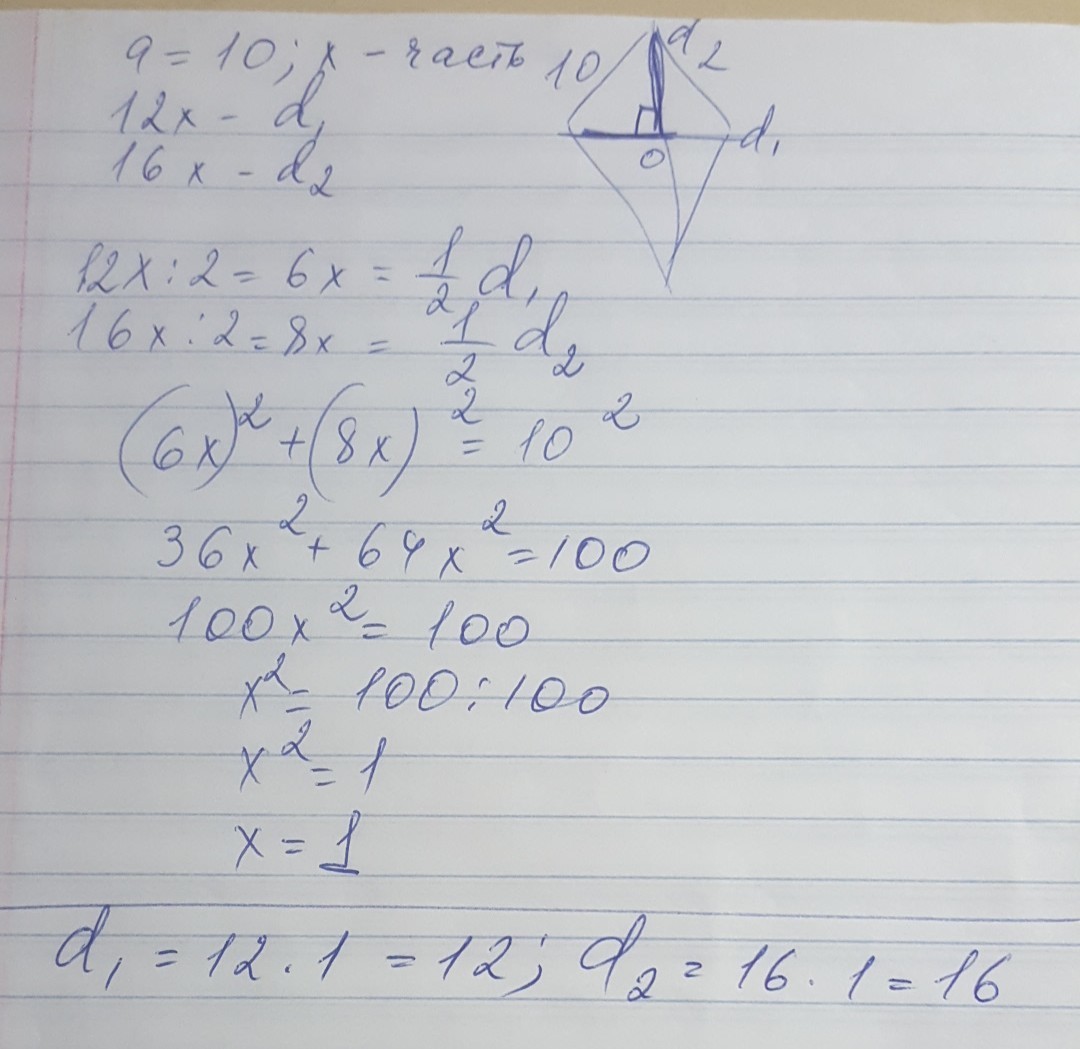 a = 10; x - часть
12x - d₁
16x - d₂
10
d₂
d₁
O
12x : 2 = 6x = 1/2 d₁
16x : 2 = 8x = 1/2 d₂
(6x)² + (8x)² = 10²
36x² + 64x² = 100
100x² = 100
x² = 100 : 100
x² = 1
x = 1
d₁ = 12 . 1 = 12; d₂ = 16 . 1 = 16